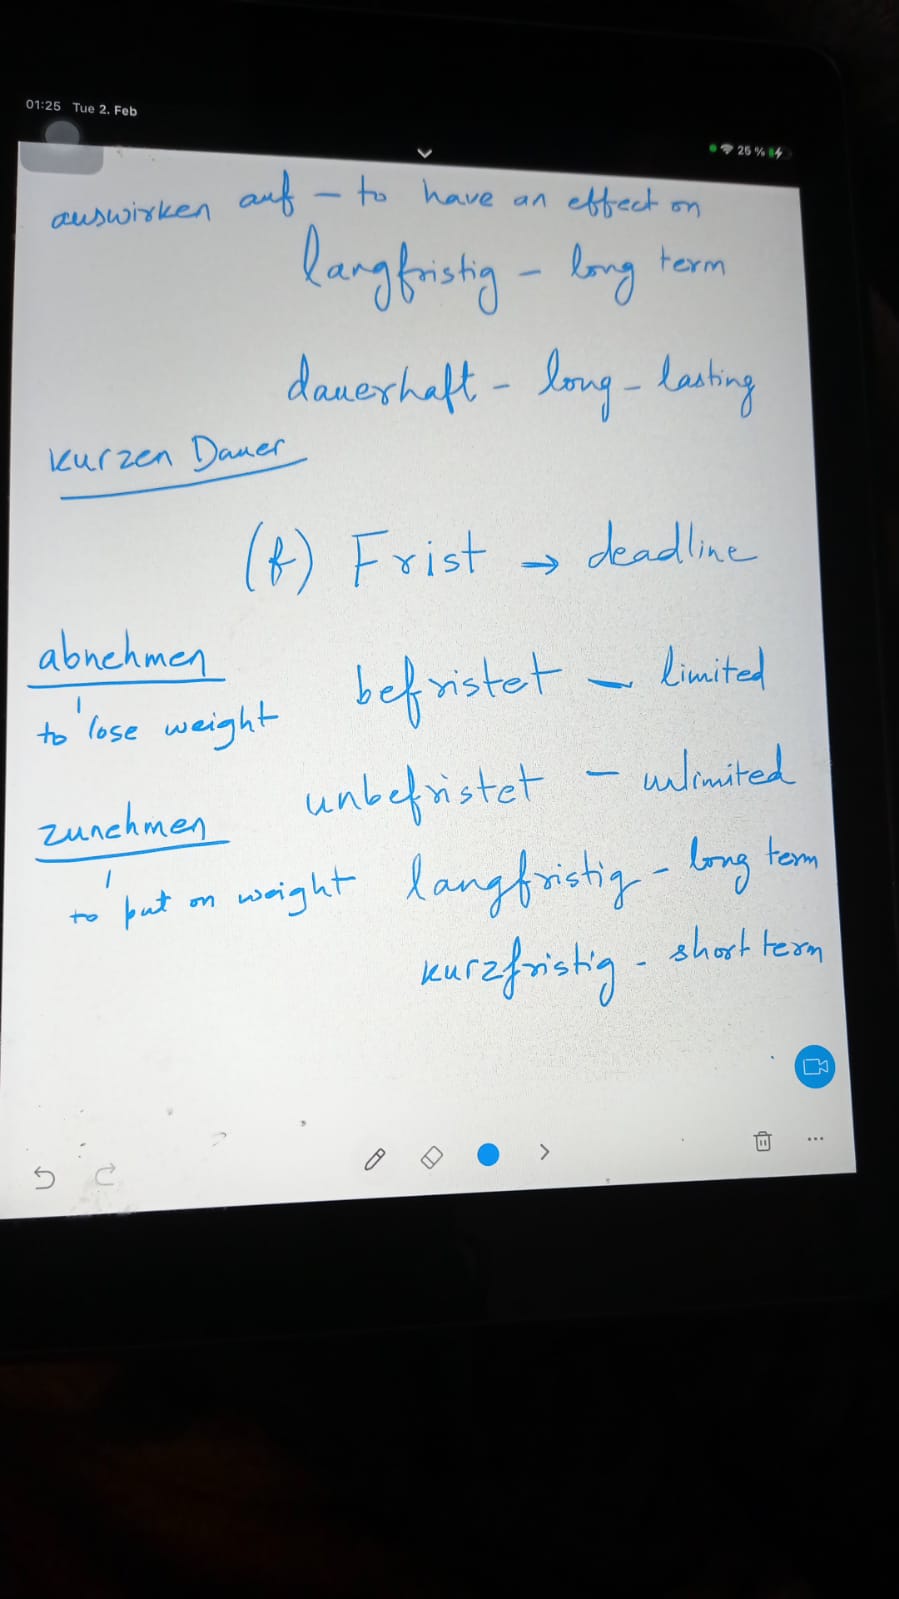 01:25 Tue 2. Feb
25 %
auswirken auf – to have an effect on
langfristig – long term
dauerhaft – long-lasting
kurzen Dauer
(f) Frist → deadline
abnehmen
to lose weight
befristet – limited
unbefristet – unlimited
zunehmen
to put on weight
langfristig - long term
kurzfristig - short term